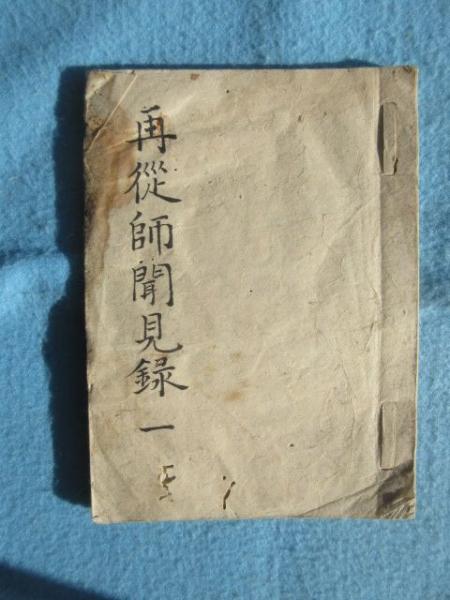 再從師聞見録一